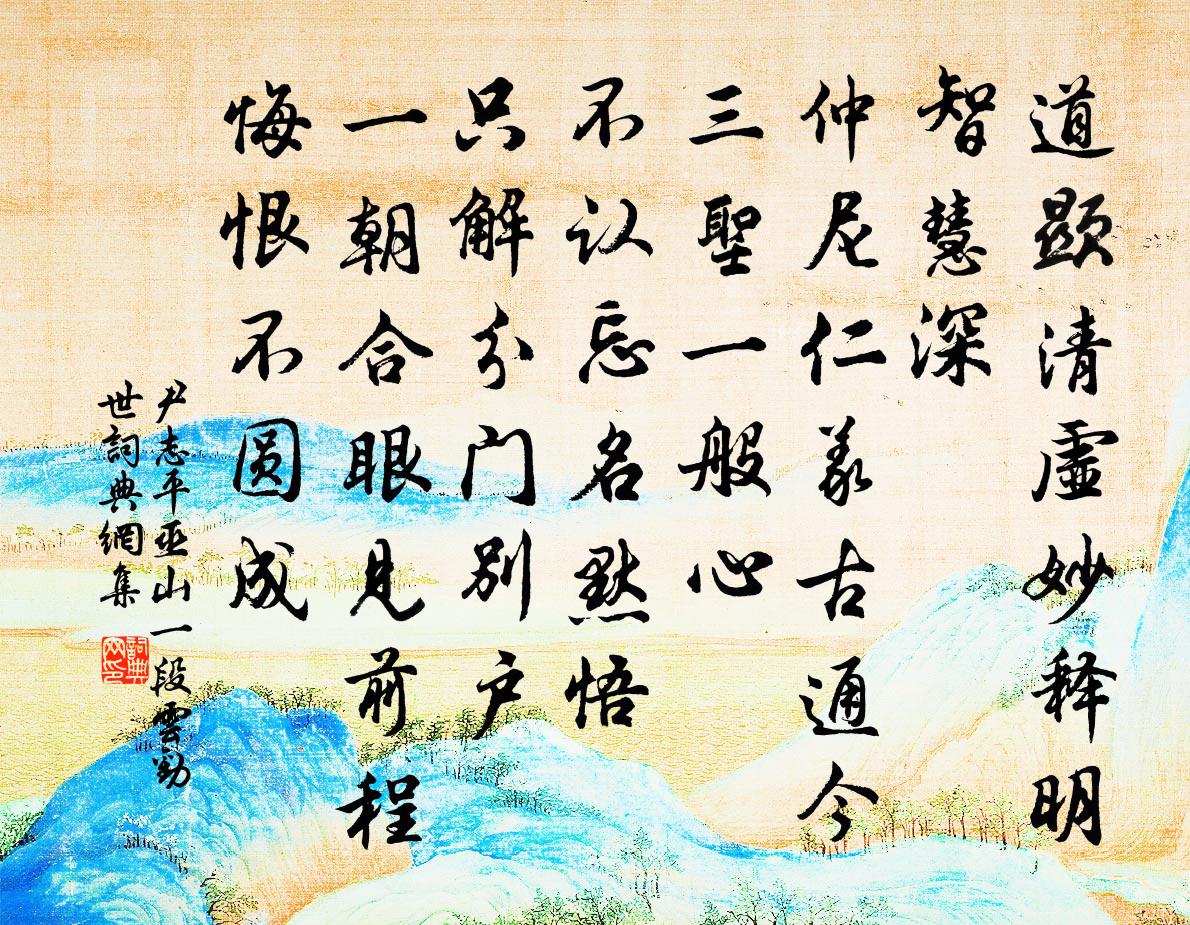 道顕清虛妙释明
智慧深
仲尼仁義古通今
三聖一般心
不认忘名黙悟
只解分门别户
一朝合眼見前程
悔恨不圆成
尹志平巫山一段雲勸
世詞典網集
詞典网印